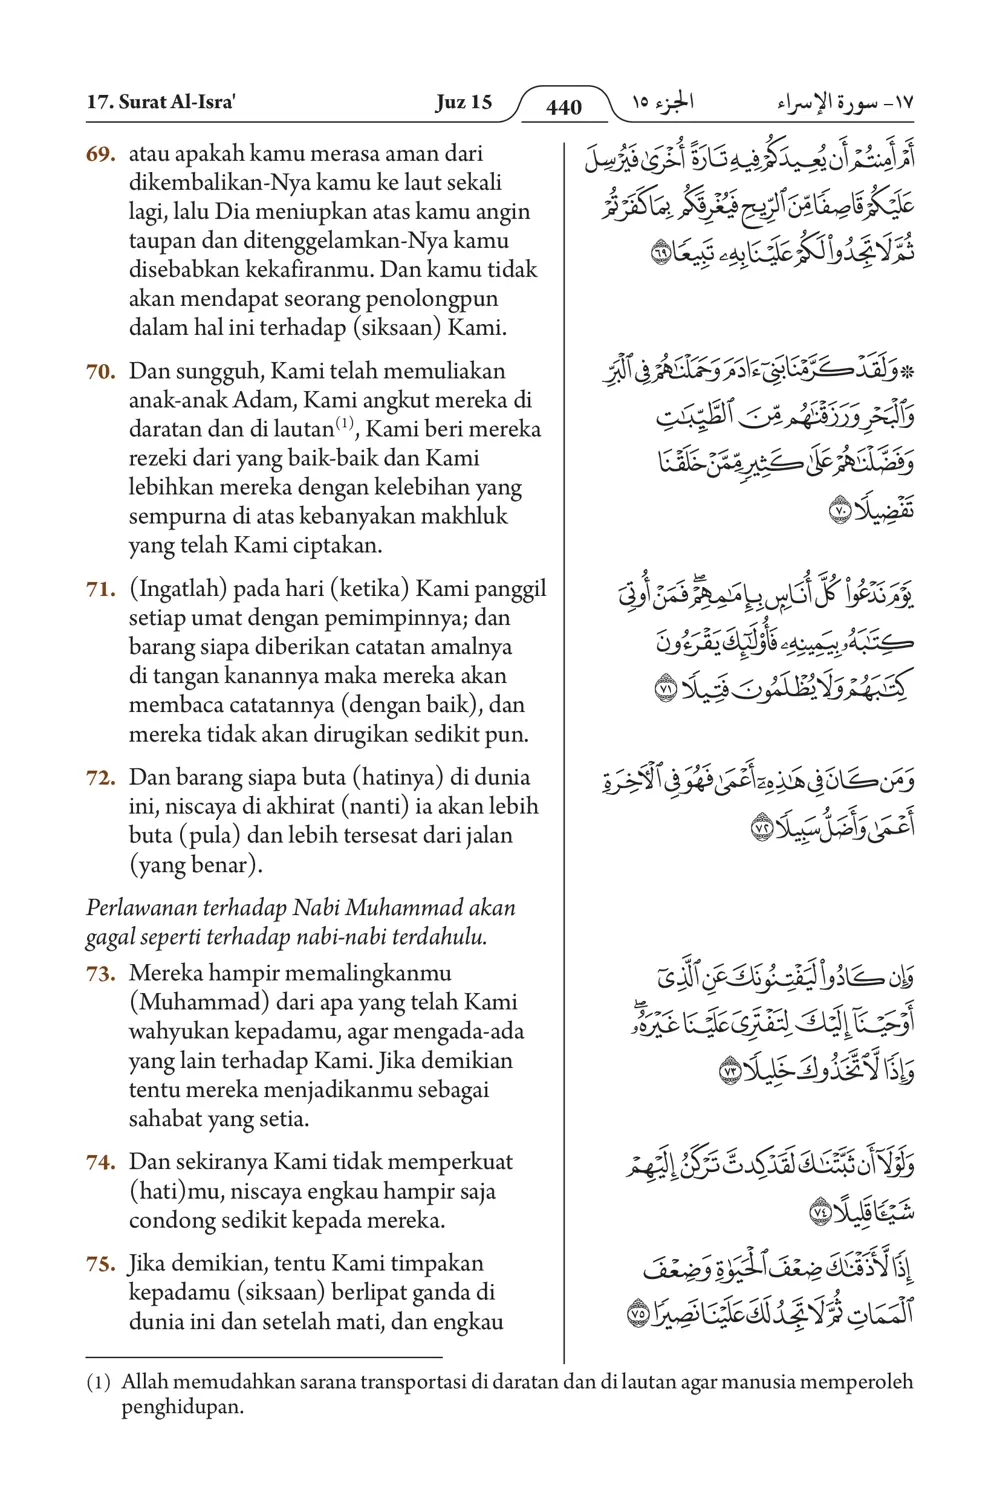 17. Surat Al-Isra'
Juz 15
440
الجزء ١٥
١٧- سورة الإسراء
69. atau apakah kamu merasa aman dari
dikembalikan-Nya kamu ke laut sekali
lagi, lalu Dia meniupkan atas kamu angin
taupan dan ditenggelamkan-Nya kamu
disebabkan kekafiranmu. Dan kamu tidak
akan mendapat seorang penolongpun
dalam hal ini terhadap (siksaan) Kami.
أَمْ أَمِنتُمْ أَن يُعِيدَكُمْ فِيهِ تَارَةً أُخْرَىٰ فَيُرْسِلَ
عَلَيْكُمْ قَاصِفًا مِّنَ ٱلرِّيحِ فَيُغْرِقَكُم بِمَا كَفَرْتُمْ
ثُمَّ لَا تَجِدُوا۟ لَكُمْ عَلَيْنَا بِهِۦ تَبِيعًا ٦٩
70. Dan sungguh, Kami telah memuliakan
anak-anak Adam, Kami angkut mereka di
daratan dan di lautan(1), Kami beri mereka
rezeki dari yang baik-baik dan Kami
lebihkan mereka dengan kelebihan yang
sempurna di atas kebanyakan makhluk
yang telah Kami ciptakan.
۞ وَلَقَدْ كَرَّمْنَا بَنِىٓ ءَادَمَ وَحَمَلْنَـٰهُمْ فِى ٱلْبَرِّ
وَٱلْبَحْرِ وَرَزَقْنَـٰهُم مِّنَ ٱلطَّيِّبَـٰتِ
وَفَضَّلْنَـٰهُمْ عَلَىٰ كَثِيرٍ مِّمَّنْ خَلَقْنَا
تَفْضِيلًا ٧٠
71. (Ingatlah) pada hari (ketika) Kami panggil
setiap umat dengan pemimpinnya; dan
barang siapa diberikan catatan amalnya
di tangan kanannya maka mereka akan
membaca catatannya (dengan baik), dan
mereka tidak akan dirugikan sedikit pun.
يَوْمَ نَدْعُوا۟ كُلَّ أُنَاسٍۭ بِإِمَـٰمِهِمْ ۖ فَمَنْ أُوتِىَ
كِتَـٰبَهُۥ بِيَمِينِهِۦ فَأُو۟لَـٰٓئِكَ يَقْرَءُونَ
كِتَـٰبَهُمْ وَلَا يُظْلَمُونَ فَتِيلًا ٧١
72. Dan barang siapa buta (hatinya) di dunia
ini, niscaya di akhirat (nanti) ia akan lebih
buta (pula) dan lebih tersesat dari jalan
(yang benar).
وَمَن كَانَ فِى هَـٰذِهِۦٓ أَعْمَىٰ فَهُوَ فِى ٱلْـَٔاخِرَةِ
أَعْمَىٰ وَأَضَلُّ سَبِيلًا ٧٢
Perlawanan terhadap Nabi Muhammad akan
gagal seperti terhadap nabi-nabi terdahulu.
73. Mereka hampir memalingkanmu
(Muhammad) dari apa yang telah Kami
wahyukan kepadamu, agar mengada-ada
yang lain terhadap Kami. Jika demikian
tentu mereka menjadikanmu sebagai
sahabat yang setia.
وَإِن كَادُوا۟ لَيَفْتِنُونَكَ عَنِ ٱلَّذِىٓ
أَوْحَيْنَآ إِلَيْكَ لِتَفْتَرِىَ عَلَيْنَا غَيْرَهُۥ ۖ
وَإِذًا لَّٱتَّخَذُوكَ خَلِيلًا ٧٣
74. Dan sekiranya Kami tidak memperkuat
(hati)mu, niscaya engkau hampir saja
condong sedikit kepada mereka.
وَلَوْلَآ أَن ثَبَّتْنَـٰكَ لَقَدْ كِدتَّ تَرْكَنُ إِلَيْهِمْ
شَيْـًٔا قَلِيلًا ٧٤
75. Jika demikian, tentu Kami timpakan
kepadamu (siksaan) berlipat ganda di
dunia ini dan setelah mati, dan engkau
إِذًا لَّأَذَقْنَـٰكَ ضِعْفَ ٱلْحَيَوٰةِ وَضِعْفَ
ٱلْمَمَاتِ ثُمَّ لَا تَجِدُ لَكَ عَلَيْنَا نَصِيرًا ٧٥
(1) Allah memudahkan sarana transportasi di daratan dan di lautan agar manusia memperoleh
penghidupan.